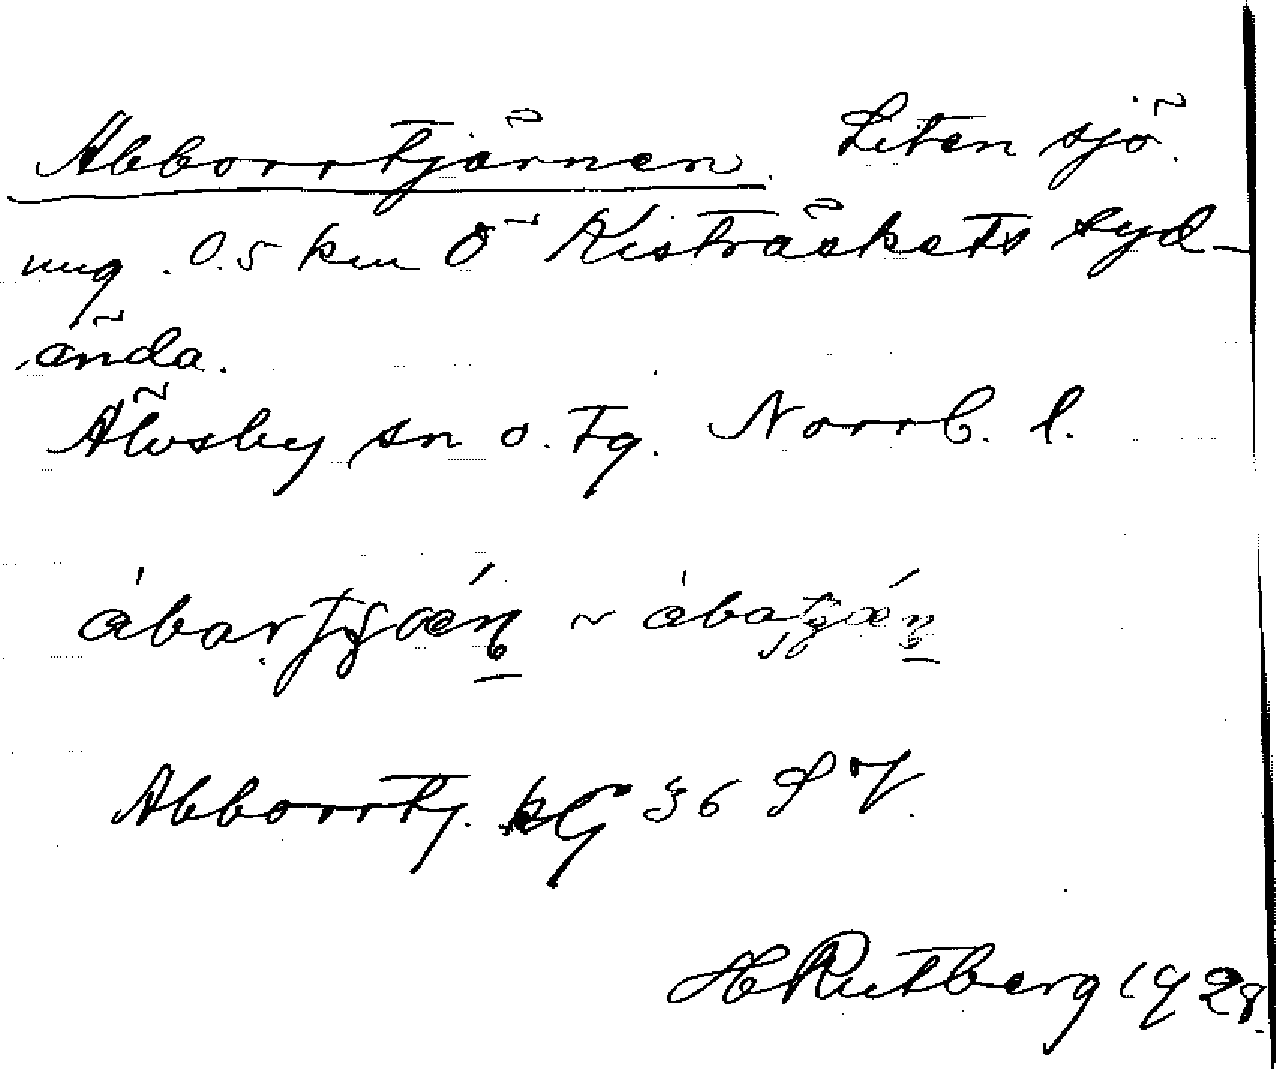 Abborrtjärnen. Liten sjö
ung. 0.5 km Ö Kisträskets syd-
ända.
Älvsby sn o. tg. Norrb. l.
Abborrtj. kG 36 SV.
H Rutberg 1928.